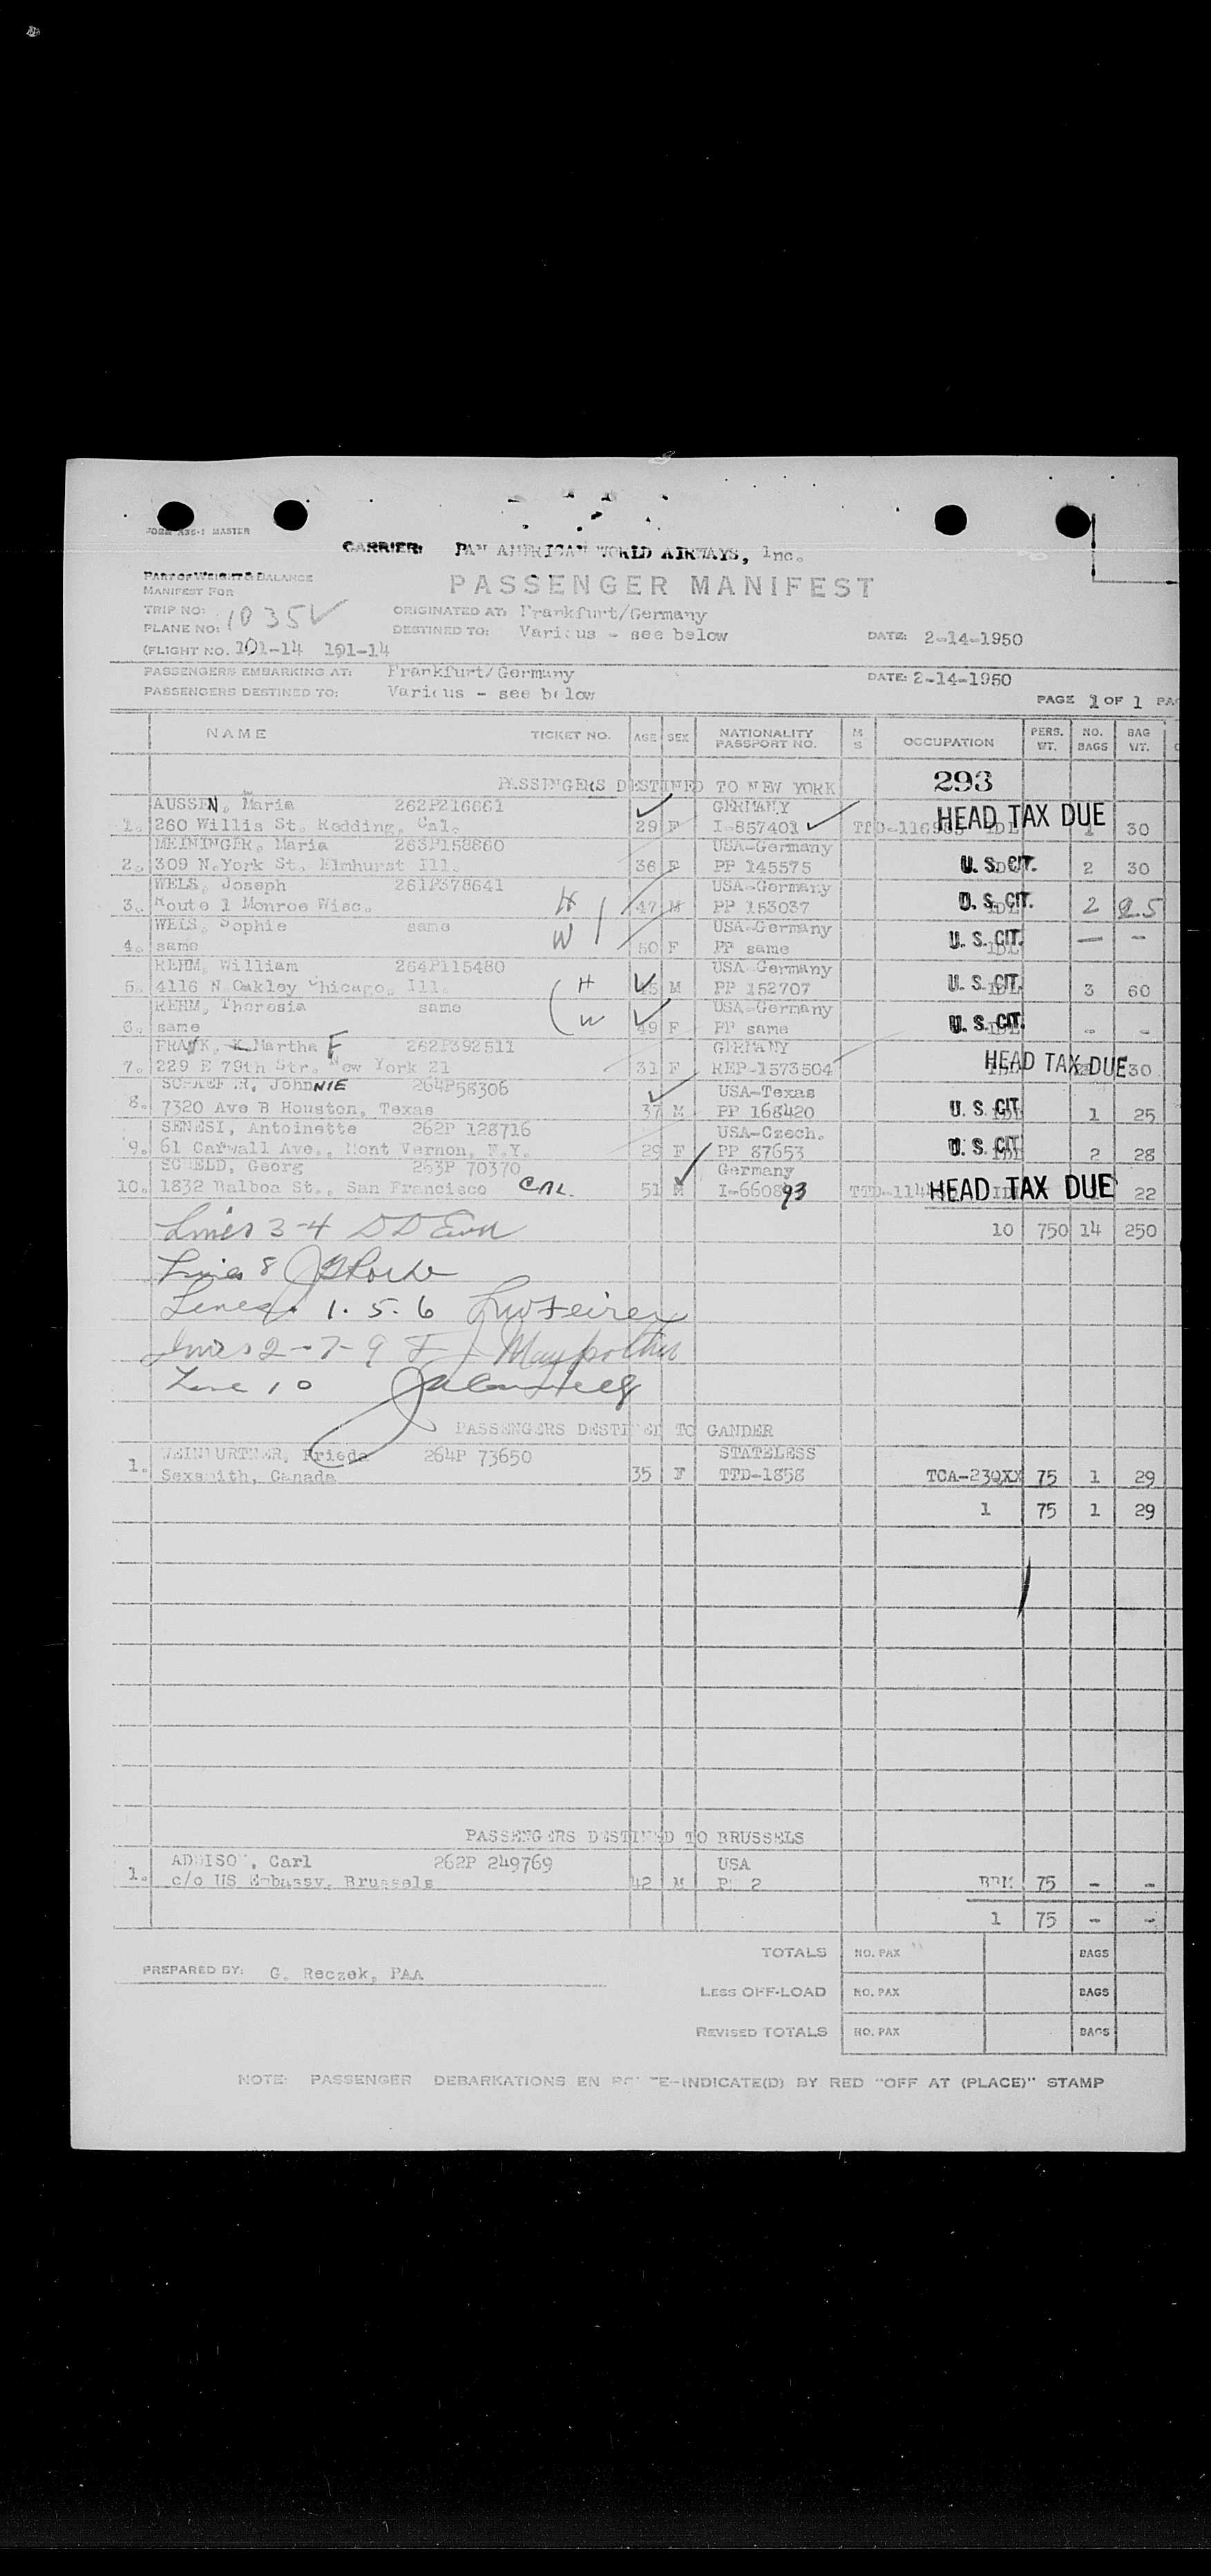 FORM A95-1 MASTER
CARRIER: PAN AMERICAN WORLD AIRWAYS, Inc.
PART OF WEIGHT & BALANCE
MANIFEST FOR
PASSENGER MANIFEST
TRIP NO: 1035
ORIGINATED AT: Frankfurt/Germany
PLANE NO:
DESTINED TO: Various - see below
DATE: 2-14-1950
(FLIGHT NO. 101-14 101-14
PASSENGERS EMBARKING AT: Frankfurt/Germany
DATE: 2-14-1950
PASSENGERS DESTINED TO: Various - see below
PAGE 1 OF 1 PA
NAME TICKET NO. AGE SEX NATIONALITY PASSPORT NO. M S OCCUPATION PERS. WT. NO. BAGS BAG WT.
PASSENGERS DESTINED TO NEW YORK 293
AUSSEN, Maria 262P216661 GERMANY HEAD TAX DUE
1. 260 Willis St. Redding, Cal. 29 F I-857401 IDL 1 30
MEININGER, Maria 263P158860 USA-Germany
2. 309 N.York St. Elmhurst Ill. 36 F PP 145575 U. S. CIT. 2 30
WELS, Joseph 261P378641 USA-Germany
3. Route 1 Monroe Wisc. H 47 M PP 153037 U. S. CIT. 2 25
WELS, Sophie same USA-Germany
4. same W 50 F PP same U. S. CIT. — -
REHM, William 264P115480 USA-Germany
5. 4116 N Oakley Chicago, Ill. H M PP 152707 U. S. CIT. 3 60
REHM, Theresia same USA-Germany
6. same W 49 F PP same U. S. CIT. - -
FRANK, Martha F 262P392511 GERMANY
7. 229 E 79th Str. New York 21 31 F REP-1573504 HEAD TAX DUE 30
SCHAEFER, JohnNIE 264P58306 USA-Texas
8. 7320 Ave B Houston, Texas 37 M PP 168420 U. S. CIT 1 25
SENESI, Antoinette 262P 128716 USA-Czech.
9. 61 Carwall Ave., Mont Vernon, N.Y. 29 F PP 87653 U. S. CIT 2 28
SCHELD, Georg 263P 70370 Germany
10. 1832 Balboa St., San Francisco CAL. 51 M I-660893 HEAD TAX DUE 22
Lines 3-4 10 750 14 250
Lines 8
Lines 1. 5. 6
Lines 2-7-9
Line 10
PASSENGERS DESTINED TO GANDER
WEINFURTNER, Frieda 264P 73650 STATELESS
1. Sexsmith, Canada 35 F TTD-1858 TCA-230XX 75 1 29
1 75 1 29
PASSENGERS DESTINED TO BRUSSELS
ADDISON, Carl 262P 249769 USA
1. c/o US Embassy, Brussels 42 M 2 75 - -
1 75 - -
TOTALS NO. PAX BAGS
PREPARED BY: G. Reczek, PAA
LESS OFF-LOAD NO. PAX BAGS
REVISED TOTALS NO. PAX BAGS
NOTE: PASSENGER DEBARKATIONS EN ROUTE-INDICATE(D) BY RED "OFF AT (PLACE)" STAMP